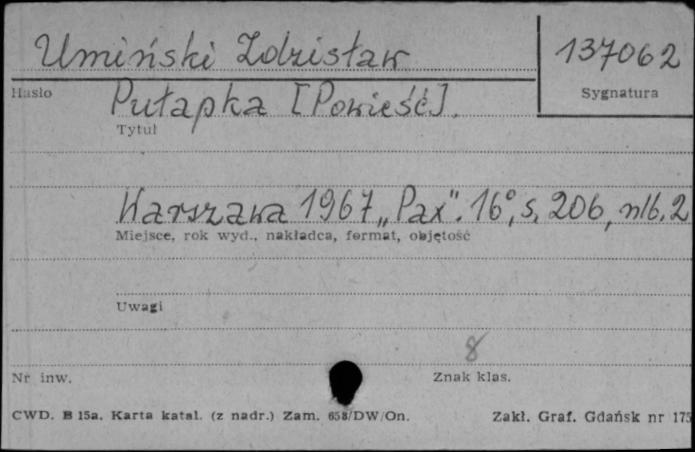 Umiński Zdzisław
137062
Hasło
Sygnatura
Pułapka [Powieść].
Tytuł
Warszawa 1967 „Pax". 16°, s. 206, nlb. 2
Miejsce, rok wyd., nakładca, format, objętość
Uwagi
8
Nr inw.
Znak klas.
CWD. B 15a. Karta katal. (z nadr.) Zam. 658/DW/On.
Zakł. Graf. Gdańsk nr 175